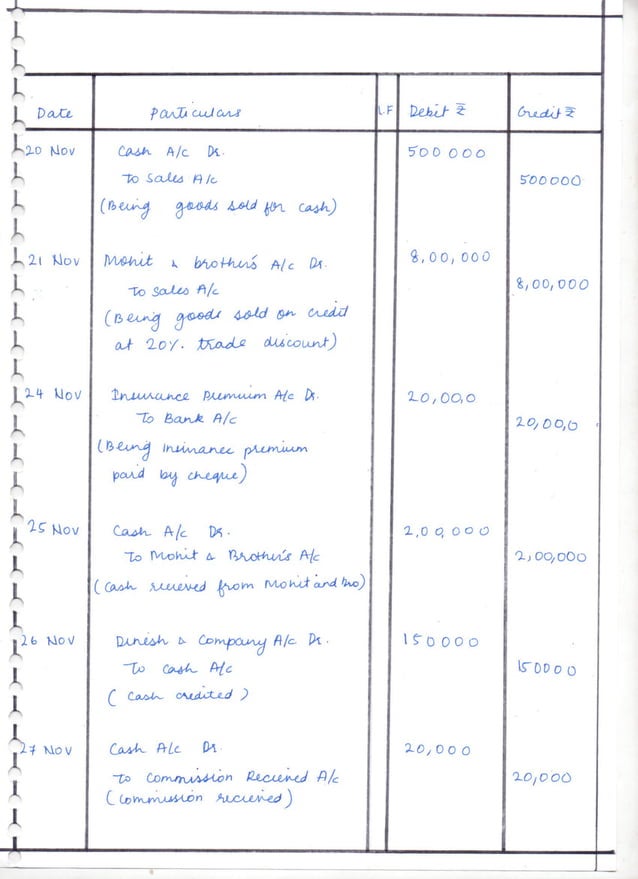 Date Particulars L.F Debit ₹ Credit ₹
20 Nov Cash A/c Dr. 500000
To Sales A/c 500000
(Being goods sold for cash)
21 Nov Mohit & brother's A/c Dr. 8,00,000
To Sales A/c 8,00,000
(Being goods sold on credit
at 20% trade discount)
24 Nov Insurance Premium A/c Dr. 20,00,0
To Bank A/c 20,00,0
(Being insurance premium
paid by cheque)
25 Nov Cash A/c Dr. 2,00,000
To Mohit & Brother's A/c 2,00,000
(Cash recieved from Mohit and bro)
26 Nov Dinesh & Company A/c Dr. 150000
To Cash A/c 150000
(Cash credited)
27 Nov Cash A/c Dr. 20,000
To Commission Recieved A/c 20,000
(Commission recieved)